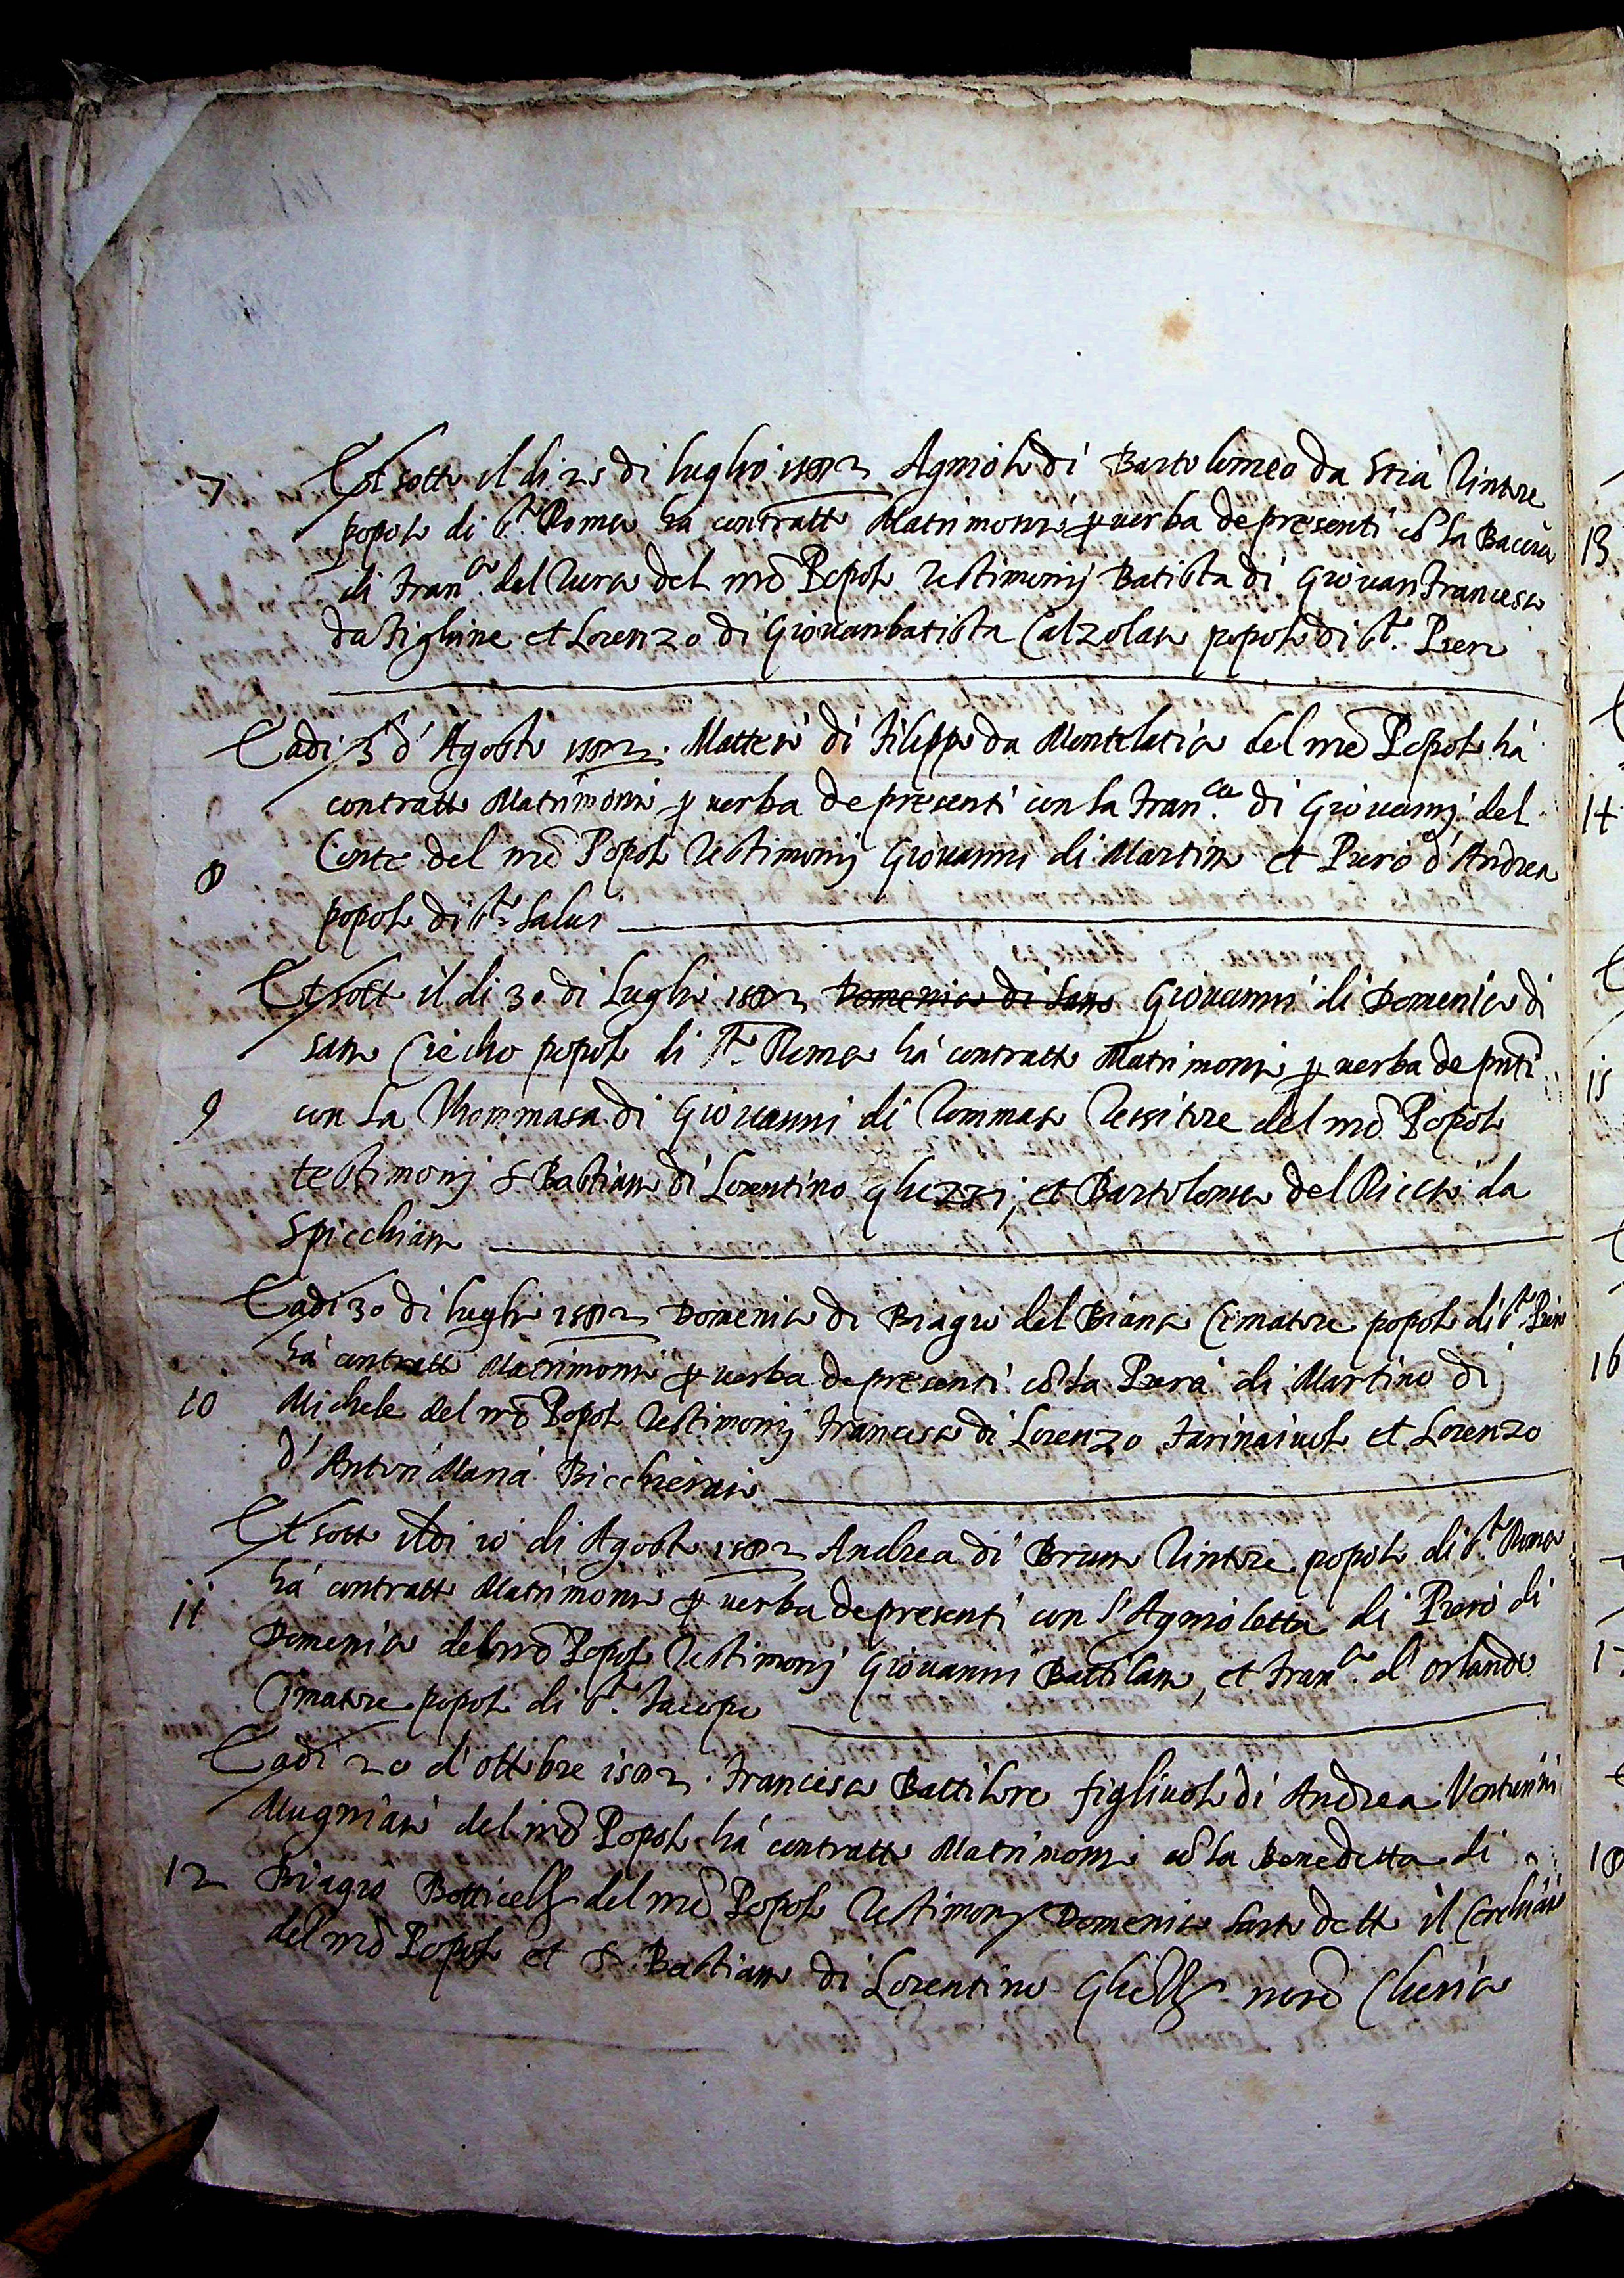 7 Et sotto il di 25 di luglio 1582 Agniolo di Bartolomeo da Stia Tintore
popolo di s.to Romeo ha contratto Matrimonio p verba de presenti cõ la
di Fran.co del del mẽ Popolo Testimonij Batista di Giovan Francesco
da Fighine et Lorenzo di Giovanbatista Calzolaro popolo di s.to Piero
E adi 3 d'Agosto 1582. Matteo di Filippo da Montelatico del mẽ Popolo ha
contratto Matrimonio p verba de presenti con la Fran.ca di Giovannj del
8 Conte del mẽ Popolo Testimonij Giovanni di Martino et Piero d'Andrea
popolo di s.to Salvi
Et sotto il di 30 di Luglio 1582 Domenico di Sano Giovanni di Domenico di
sano Ciecho popolo di s.to Romeo ha contratto Matrimonio p verba de pnti
9 con la Thommasa di Giovanni di Tommaso Tessitore del mẽ Popolo
testimonij S Bastiano di Lorentino ghezzi, et Bartolomeo del Riccio da
Spicchiano
E adi 30 di luglio 1582 Domenico di Biagio del Bianco Cimatore popolo di s.to Piero
ha contratto Matrimonio p verba de presenti cõ la Piera di Martino di
10 Michele del mẽ Popolo Testimonij Francesco di Lorenzo Farinaiuolo et Lorenzo
d'Anton Maria Bicchieraio
Et sotto il di 10 di Agosto 1582 Andrea di Bruno Tintore popolo di s.to Romeo
11 ha contratto Matrimonio p verba de presenti con l'Agnioletta di Piero di
Domenico del mẽ Popolo Testimonij Giovanni Battilano, et Fran.co d'Orlando
Cimatore popolo di s.to Iacopo
E adi 20 d'ottobre 1582. Francesco Battiloro figliuolo di Andrea Venturini
Mugniaio del mẽ Popolo ha contratto Matrimonio cõ la Benedetta di
12 Biagio Botticelli del mẽ Popolo Testimonij Domenico Sarto detto il
del mẽ Popolo et S Bastiano di Lorentino nrõ Cherico
13
14
15
16
17
18